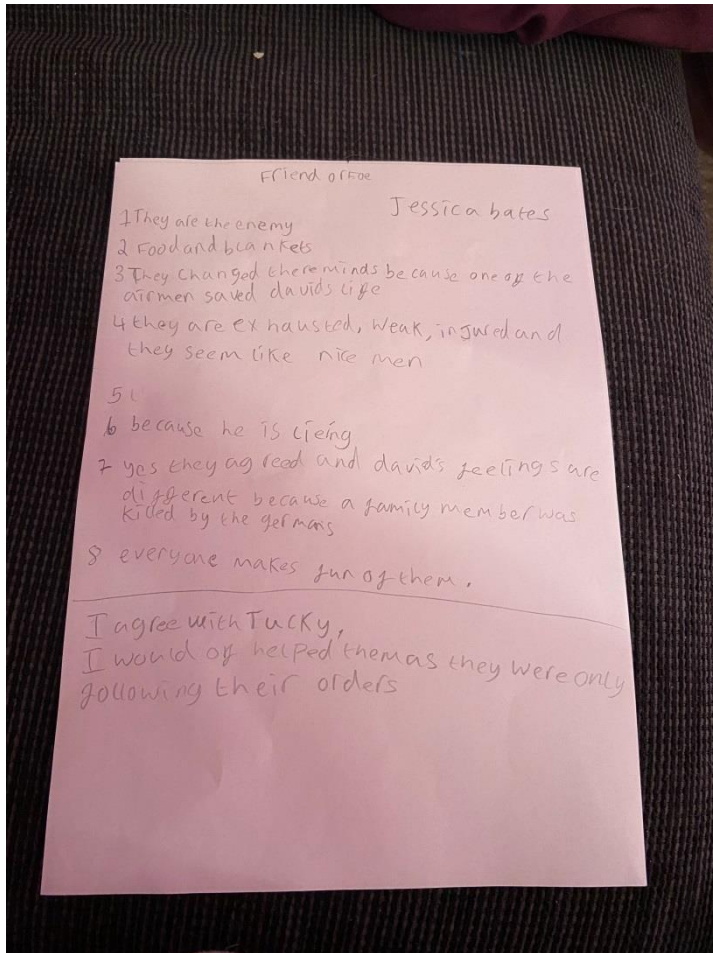 Friend or Foe
Jessica bates
1 They are the enemy
2 Food and blankets
3 They changed there minds because one of the
airmen saved davids life
4 they are exhausted, weak, injured and
they seem like nice men
5
6 because he is lieing
7 yes they agreed and david's feelings are
different because a family member was
killed by the germans
8 everyone makes fun of them.
I agree with Tucky,
I would of helped them as they were only
following their orders